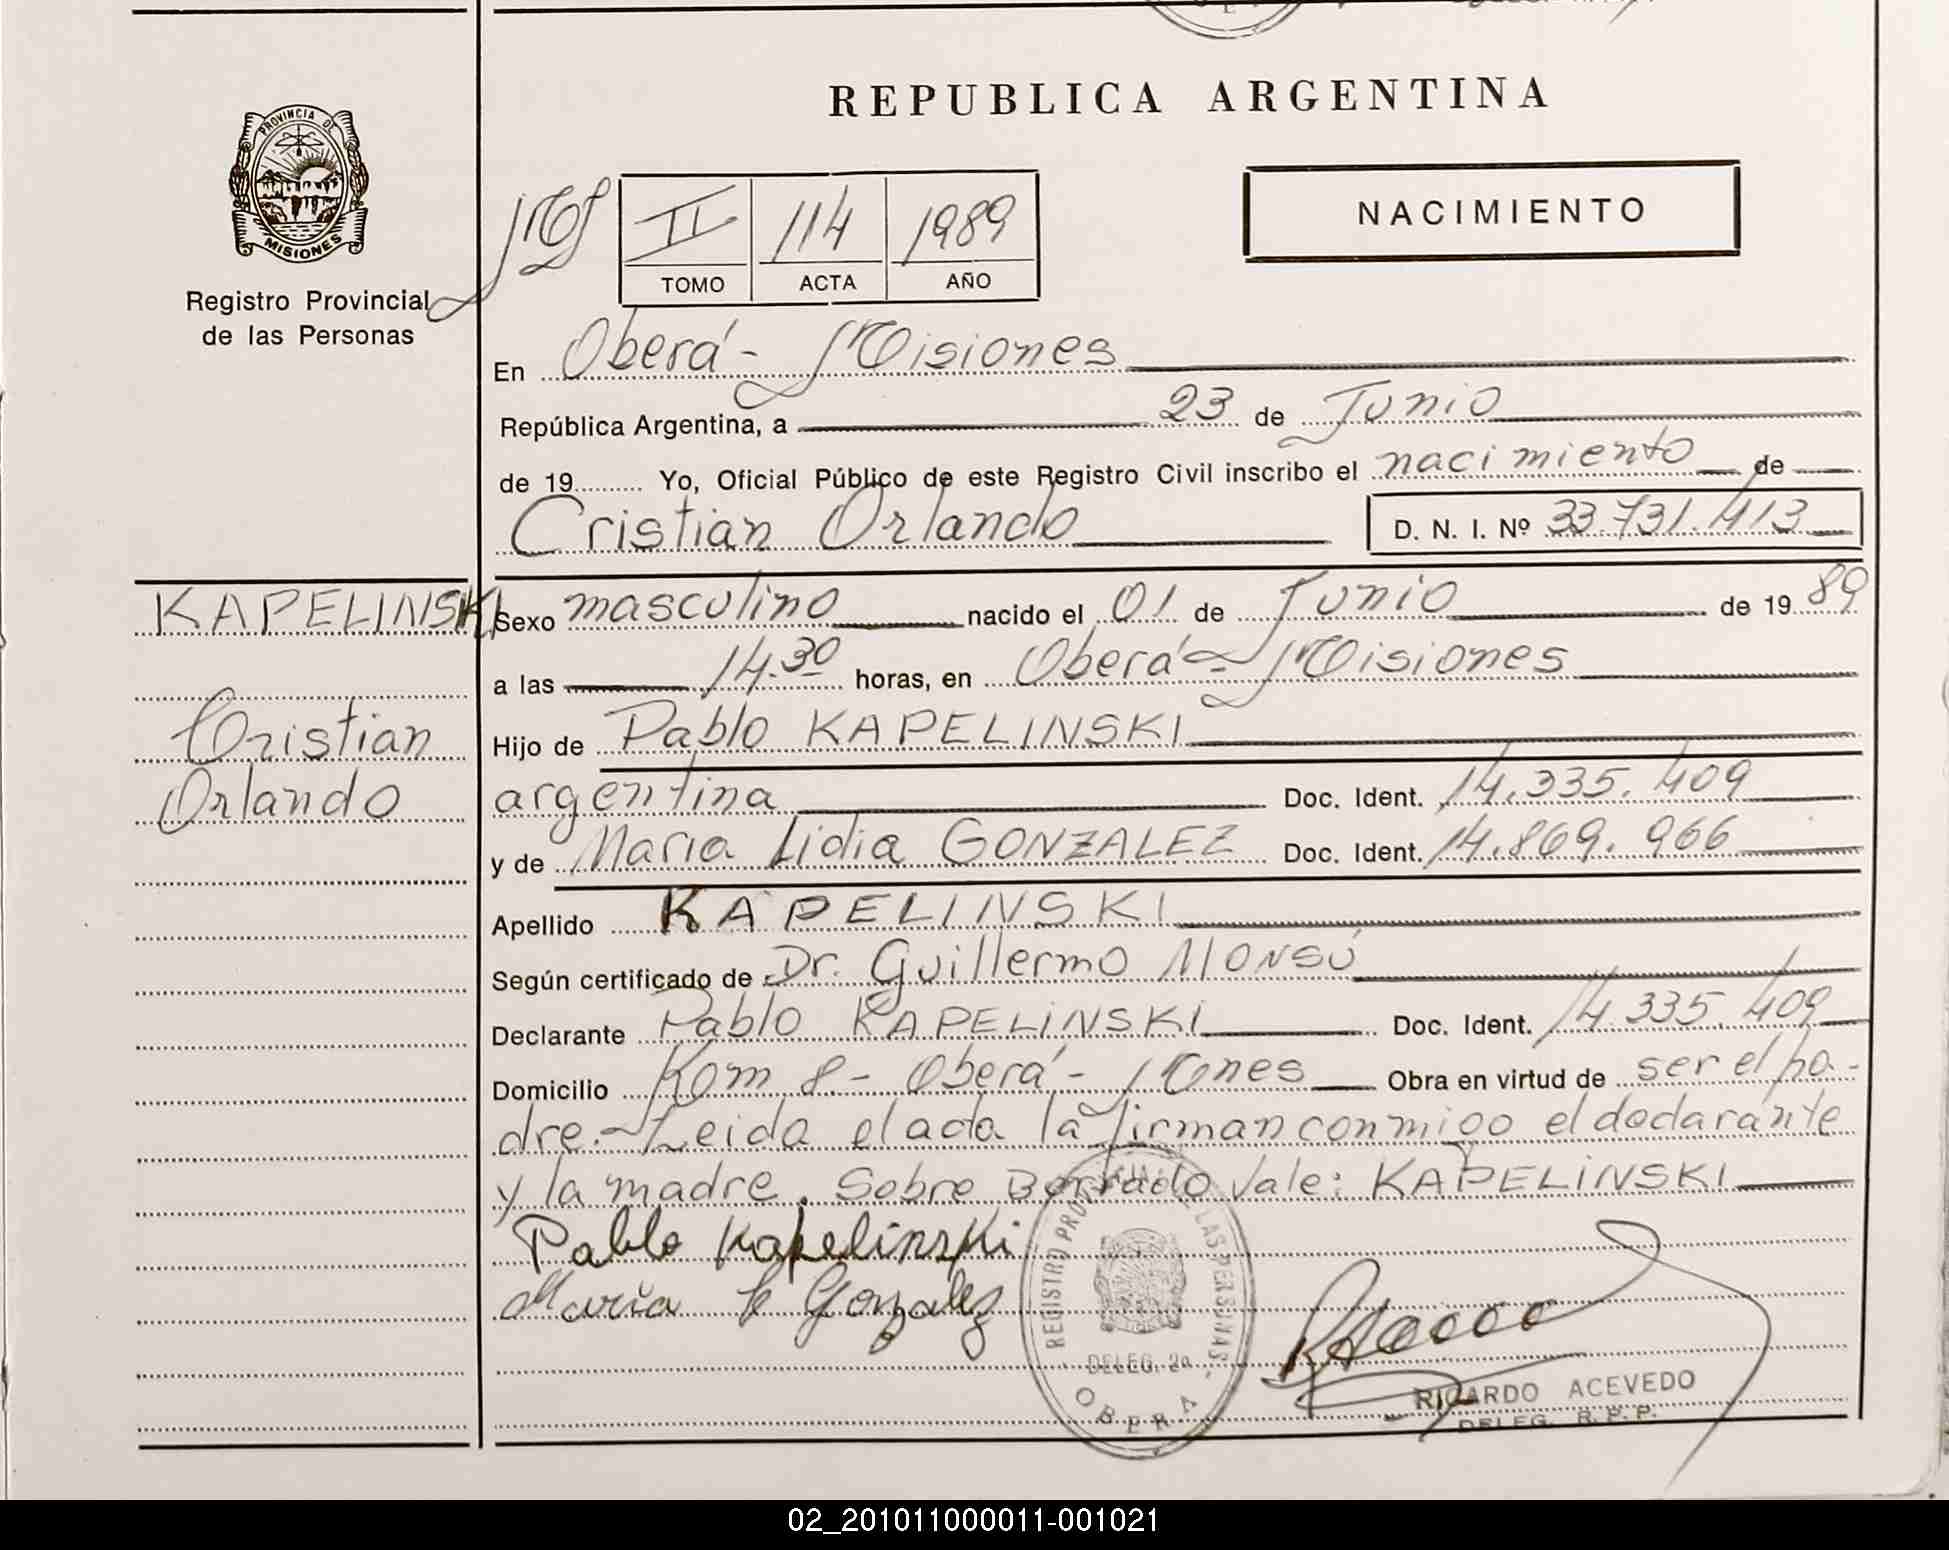 REPUBLICA ARGENTINA
PROVINCIA DE
MISIONES
Registro Provincial
de las Personas
II 114 1989
TOMO ACTA AÑO
NACIMIENTO
En Oberá - Misiones
República Argentina, a 23 de Junio
de 19 Yo, Oficial Público de este Registro Civil inscribo el nacimiento de
Cristian Orlando D. N. I. Nº 33.731.413
KAPELINSKI
Cristian
Orlando
Sexo masculino nacido el 01 de Junio de 19 89
a las 14.30 horas, en Oberá - Misiones
Hijo de Pablo KAPELINSKI
argentina Doc. Ident. 14.335.409
y de Maria Lidia GONZALEZ Doc. Ident. 14.869.966
Apellido KAPELINSKI
Según certificado de Dr. Guillermo Monsú
Declarante Pablo KAPELINSKI Doc. Ident. 14.335.409
Domicilio Kom 8 - Oberá - Mnes Obra en virtud de ser el pa-
dre. Leida el acta la firman conmigo el declarante
y la madre. Sobre Borrado Vale: KAPELINSKI
Pablo Kapelinski
María L Gonzalez
REGISTRO PROVINCIAL DE LAS PERSONAS
DELEG. 2a
OBERA
RICARDO ACEVEDO
DELEG. R. P. P.
02_201011000011-001021